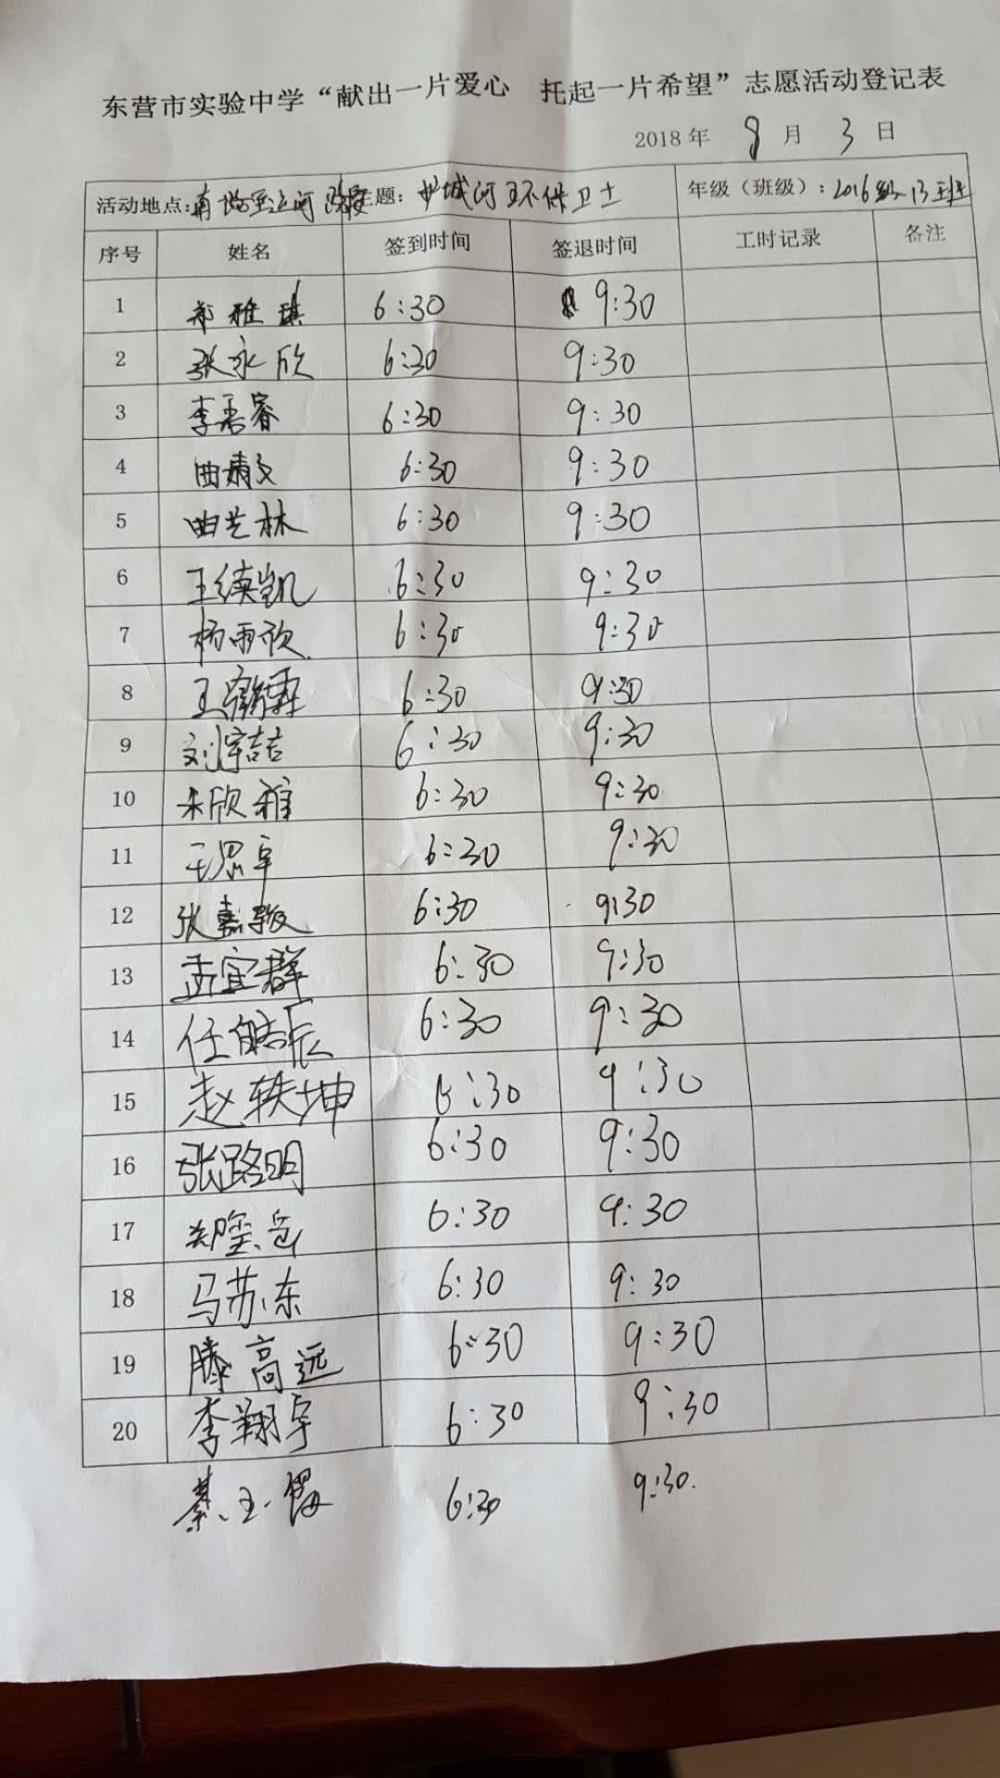 东营市实验中学“献出一片爱心 托起一片希望”志愿活动登记表
2018年 8 月 3 日
活动地点: 主题: 护城河环保卫士 年级（班级）: 2016级13班
序号 姓名 签到时间 签退时间 工时记录 备注
1 雅琪 6:30 9:30
2 张永欣 6:30 9:30
3 李睿 6:30 9:30
4 曲靖文 6:30 9:30
5 曲艺林 6:30 9:30
6 王续凯 6:30 9:30
7 杨雨欣 6:30 9:30
8 王霖 6:30 9:30
9 刘宇喆 6:30 9:30
10 欣雅 6:30 9:30
11 王思宇 6:30 9:30
12 张嘉骏 6:30 9:30
13 孟宜群 6:30 9:30
14 任皓辰 6:30 9:30
15 赵轶坤 6:30 9:30
16 张路明 6:30 9:30
17 郑 6:30 9:30
18 马苏东 6:30 9:30
19 滕高远 6:30 9:30
20 李翔宇 6:30 9:30
綦玉 6:30 9:30.